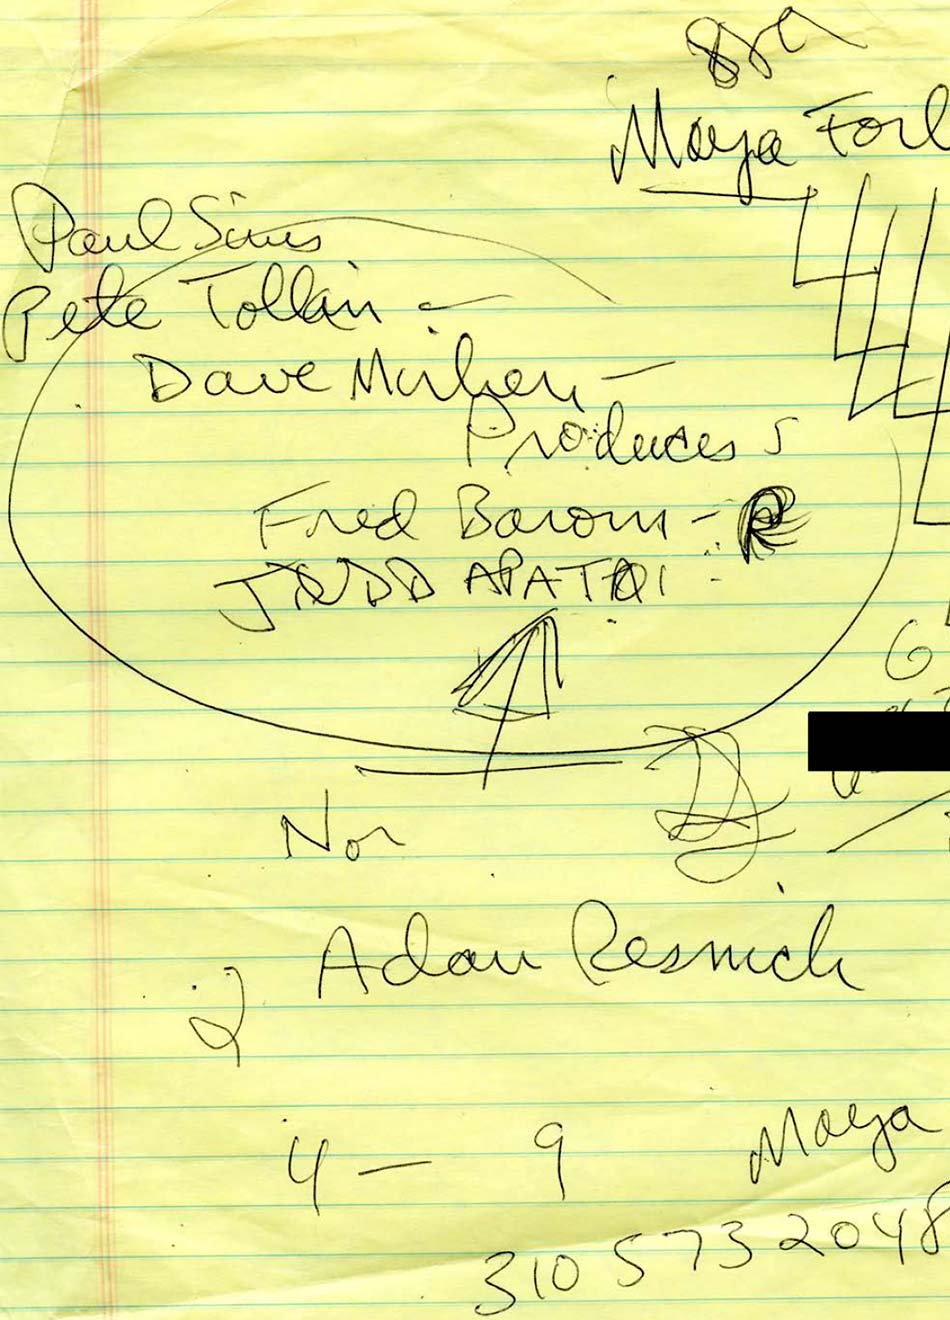 Maya Forb
Paul Sims
Pete Tollan -
Dave Mirhen -
Produces 5
Fred Barom -
JUDD APATOI
6
Nor
Adam Resnick
2
4 - 9
Maya
310 573 2048